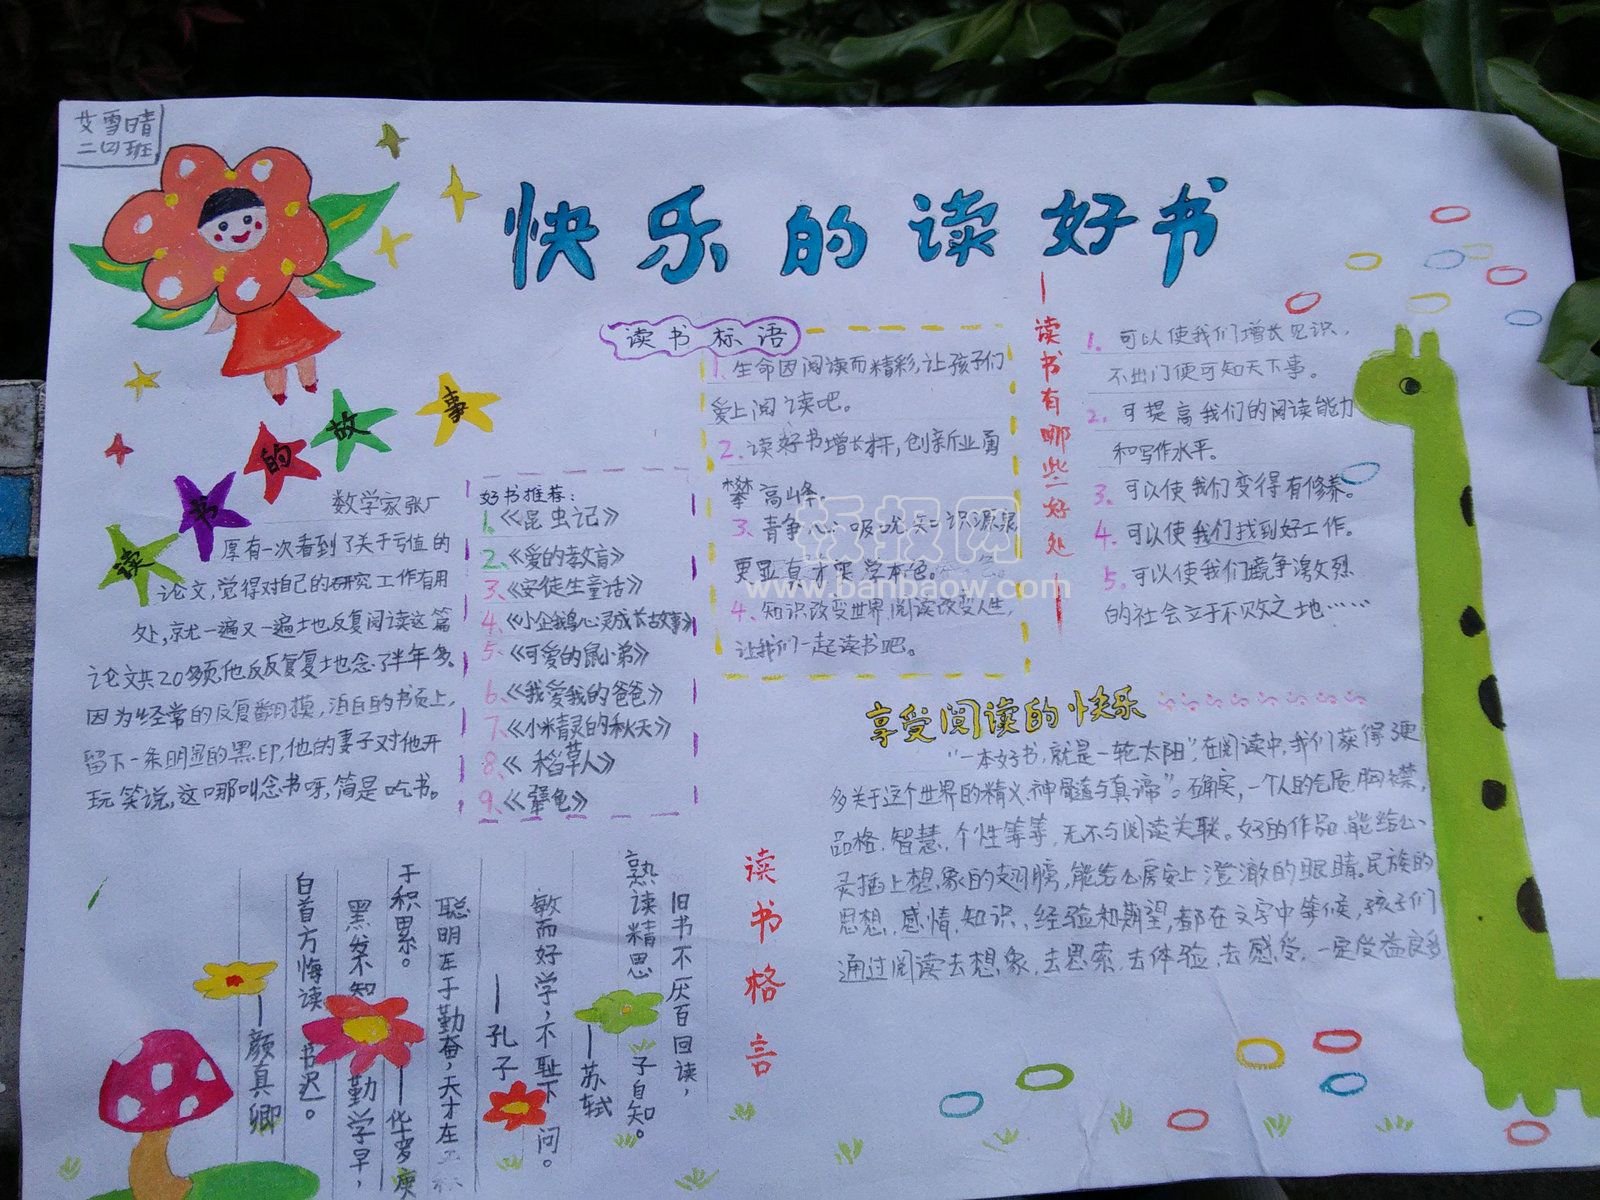 艾雪晴
二(2)班
快乐的读好书
读书的故事
数学家张广
厚有一次看到了关于亏值的
论文,觉得对自己的研究工作有用
处,就一遍又一遍地反复阅读这篇
论文共20多页,他反反复复地念了半年多.
因为经常的反复翻摸,洁白的书页上,
留下一条明显的黑印,他的妻子对他开
玩笑说,这哪叫念书呀,简是吃书。
好书推荐:
1.《昆虫记》
2.《爱的教育》
3.《安徒生童话》
4.《小企鹅心灵成长故事》
5.《可爱的鼠小弟》
6.《我爱我的爸爸》
7.《小米精灵的秋天》
8.《稻草人》
9.《犟龟》
读书标语
1.生命因阅读而精彩,让孩子们
爱上阅读吧。
2.读好书增长才,创新业勇
攀高峰.
3.青争心吸吮知识源泉
更显真才实学本色。
4.知识改变世界,阅读改变人生,
让我们一起读书吧。
读书有哪些好处
1.可以使我们增长见识,
不出门便可知天下事。
2.可提高我们的阅读能力
和写作水平。
3.可以使我们变得有修养。
4.可以使我们找到好工作。
5.可以使我们竞争激烈
的社会立于不败之地……
享受阅读的快乐
"一本好书,就是一轮太阳",在阅读中,我们获得更
多关于这个世界的精义、神髓与真谛"。确实,一个人的气质.胸襟,
品格.智慧,个性等等,无不与阅读关联。好的作品,能给心
灵插上想象的翅膀,能给心房安上澄澈的眼睛,民族的
思想,感情,知识,经验和期望,都在文字中等候,孩子们
通过阅读去想象,去思索,去体验,去感受,一定受益良多
读书格言
旧书不厌百回读,
熟读精思子自知。
—苏轼
敏而好学,不耻下问。
—孔子
聪明在于勤奋,天才在
于积累。
—华罗庚
黑发不知勤学早,
白首方悔读书迟。
—颜真卿
板报网
www.banbaow.com